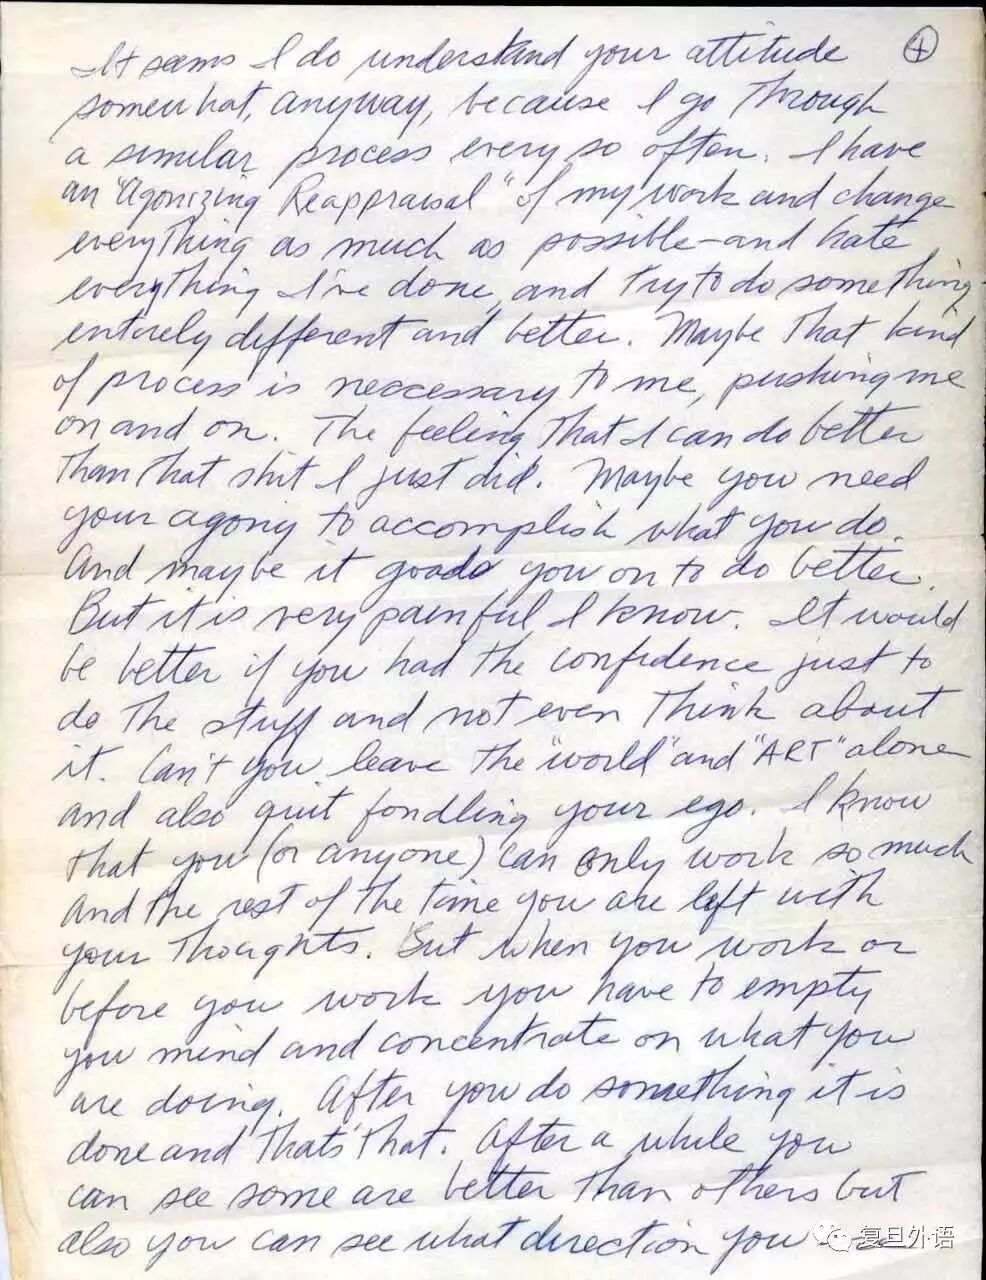 4
It seems I do understand your attitude
somewhat, anyway, because I go through
a similar process every so often. I have
an "Agonizing Reappraisal" of my work and change
everything as much as possible—and hate
everything I've done, and try to do something
entirely different and better. Maybe that kind
of process is neccessary to me, pushing me
on and on. The feeling that I can do better
than that shit I just did. Maybe you need
your agony to accomplish what you do.
And maybe it goads you on to do better.
But it is very painful I know. It would
be better if you had the confidence just to
do the stuff and not even think about
it. Can't you leave the "world" and "ART" alone
and also quit fondling your ego. I know
that you (or anyone) can only work so much
and the rest of the time you are left with
your thoughts. But when you work or
before you work you have to empty
you mind and concentrate on what you
are doing. After you do something it is
done and that's that. After a while you
can see some are better than others but
also you can see what direction you
复旦外语